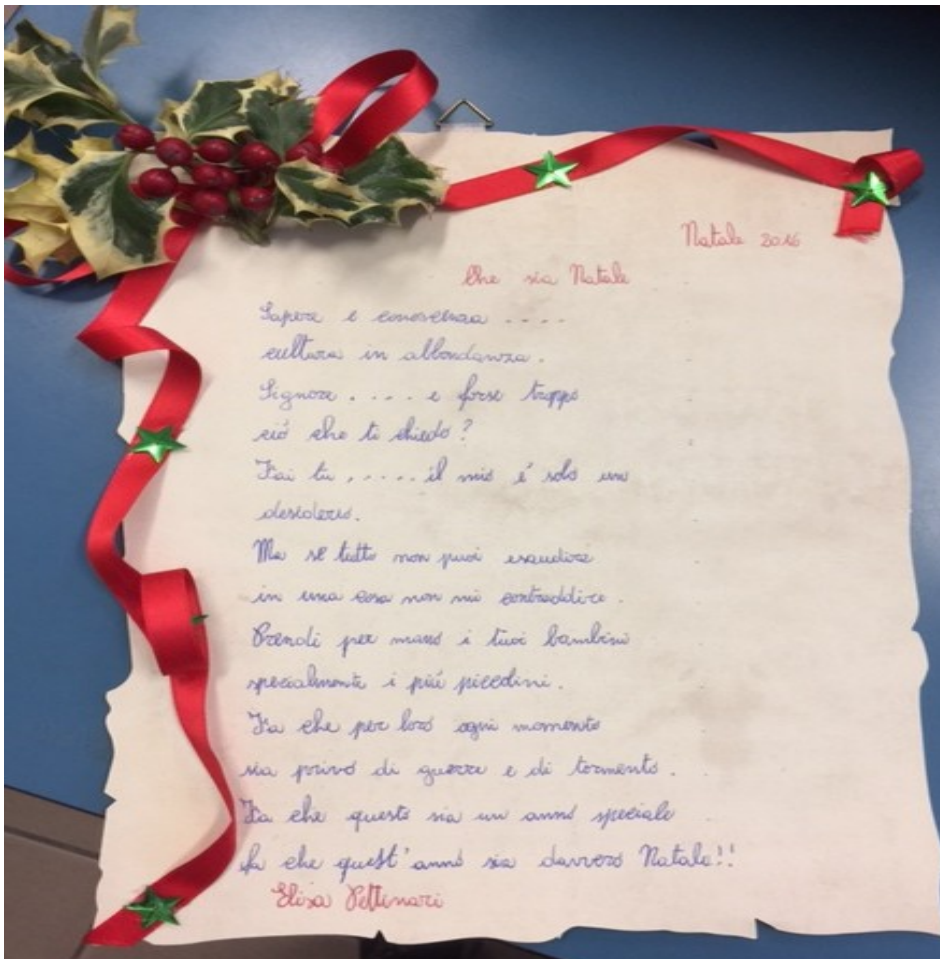 Natale 2016
Che sia Natale
Sapere e conoscenza ....
cultura in abbondanza.
Signore .... e forse troppo
ció che ti chiedo?
Fai tu, ..... il mio é solo un
desiderio.
Ma se tutto non puoi esaudire
in una cosa non mi contraddire.
Prendi per mano i tuoi bambini
specialmente i piú piccolini.
Fa che per loro ogni momento
sia privo di guerre e di tormento.
Fa che questo sia un anno speciale
fa che quest'anno sia davvero Natale!!
Elisa Pettinari